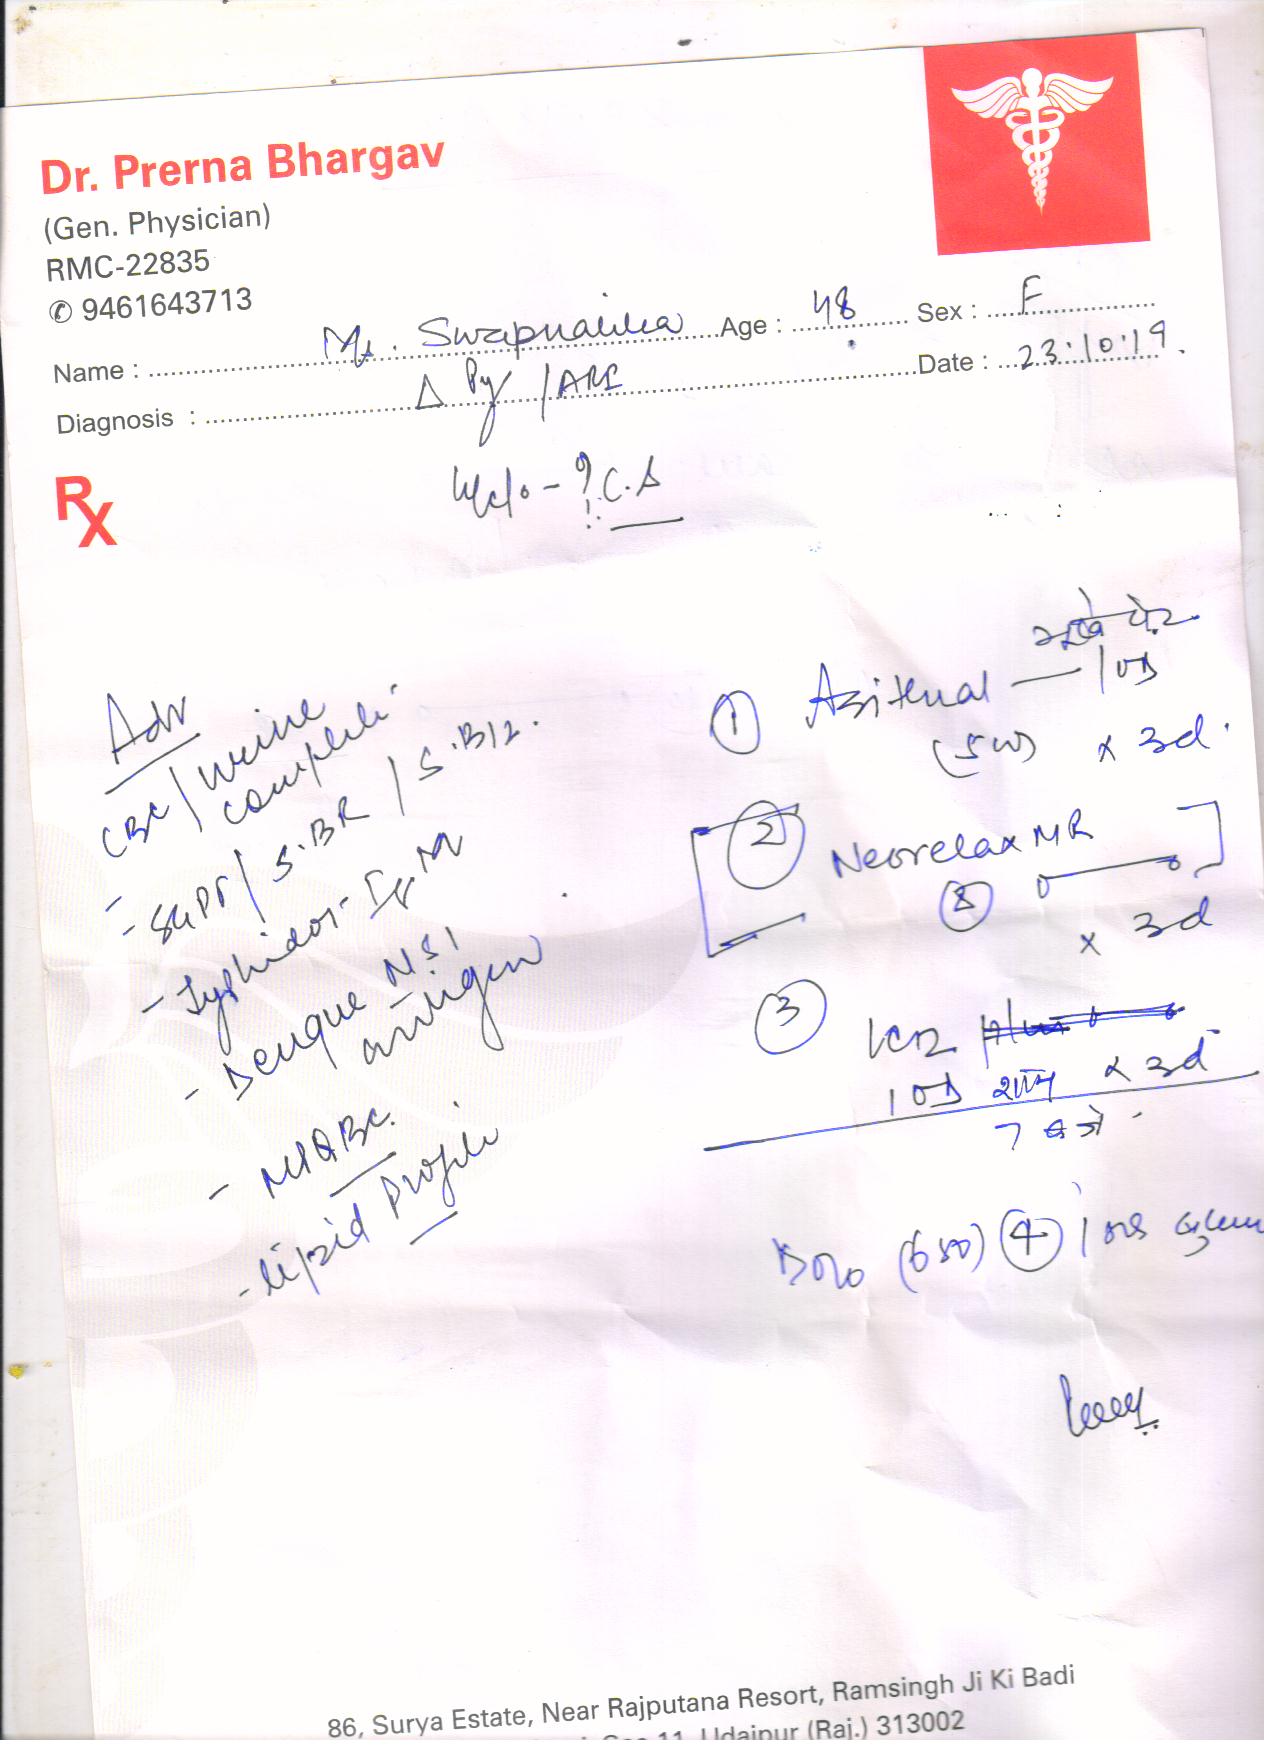 Dr. Prerna Bhargav
(Gen. Physician)
RMC-22835
9461643713
Name : Ms. Swapnalika Age : 48 Sex : F
Diagnosis : Δ Py /ARI Date : 23.10.19.
H/o - ? C.S
Rx
Adv
CBC / Urine
complete
- SGPT / S.BR / S.B12.
- Typhidot-IgM
- Dengue NS1
antigen
- MP QBC.
- lipid Profile
① Azithral — 1 OD
(500) x 3d.
② Neorelax MR
x 3d
③
1 OD शाम x 3d
7 बजे
Dolo (650) ④
86, Surya Estate, Near Rajputana Resort, Ramsingh Ji Ki Badi
11, Udaipur (Raj.) 313002